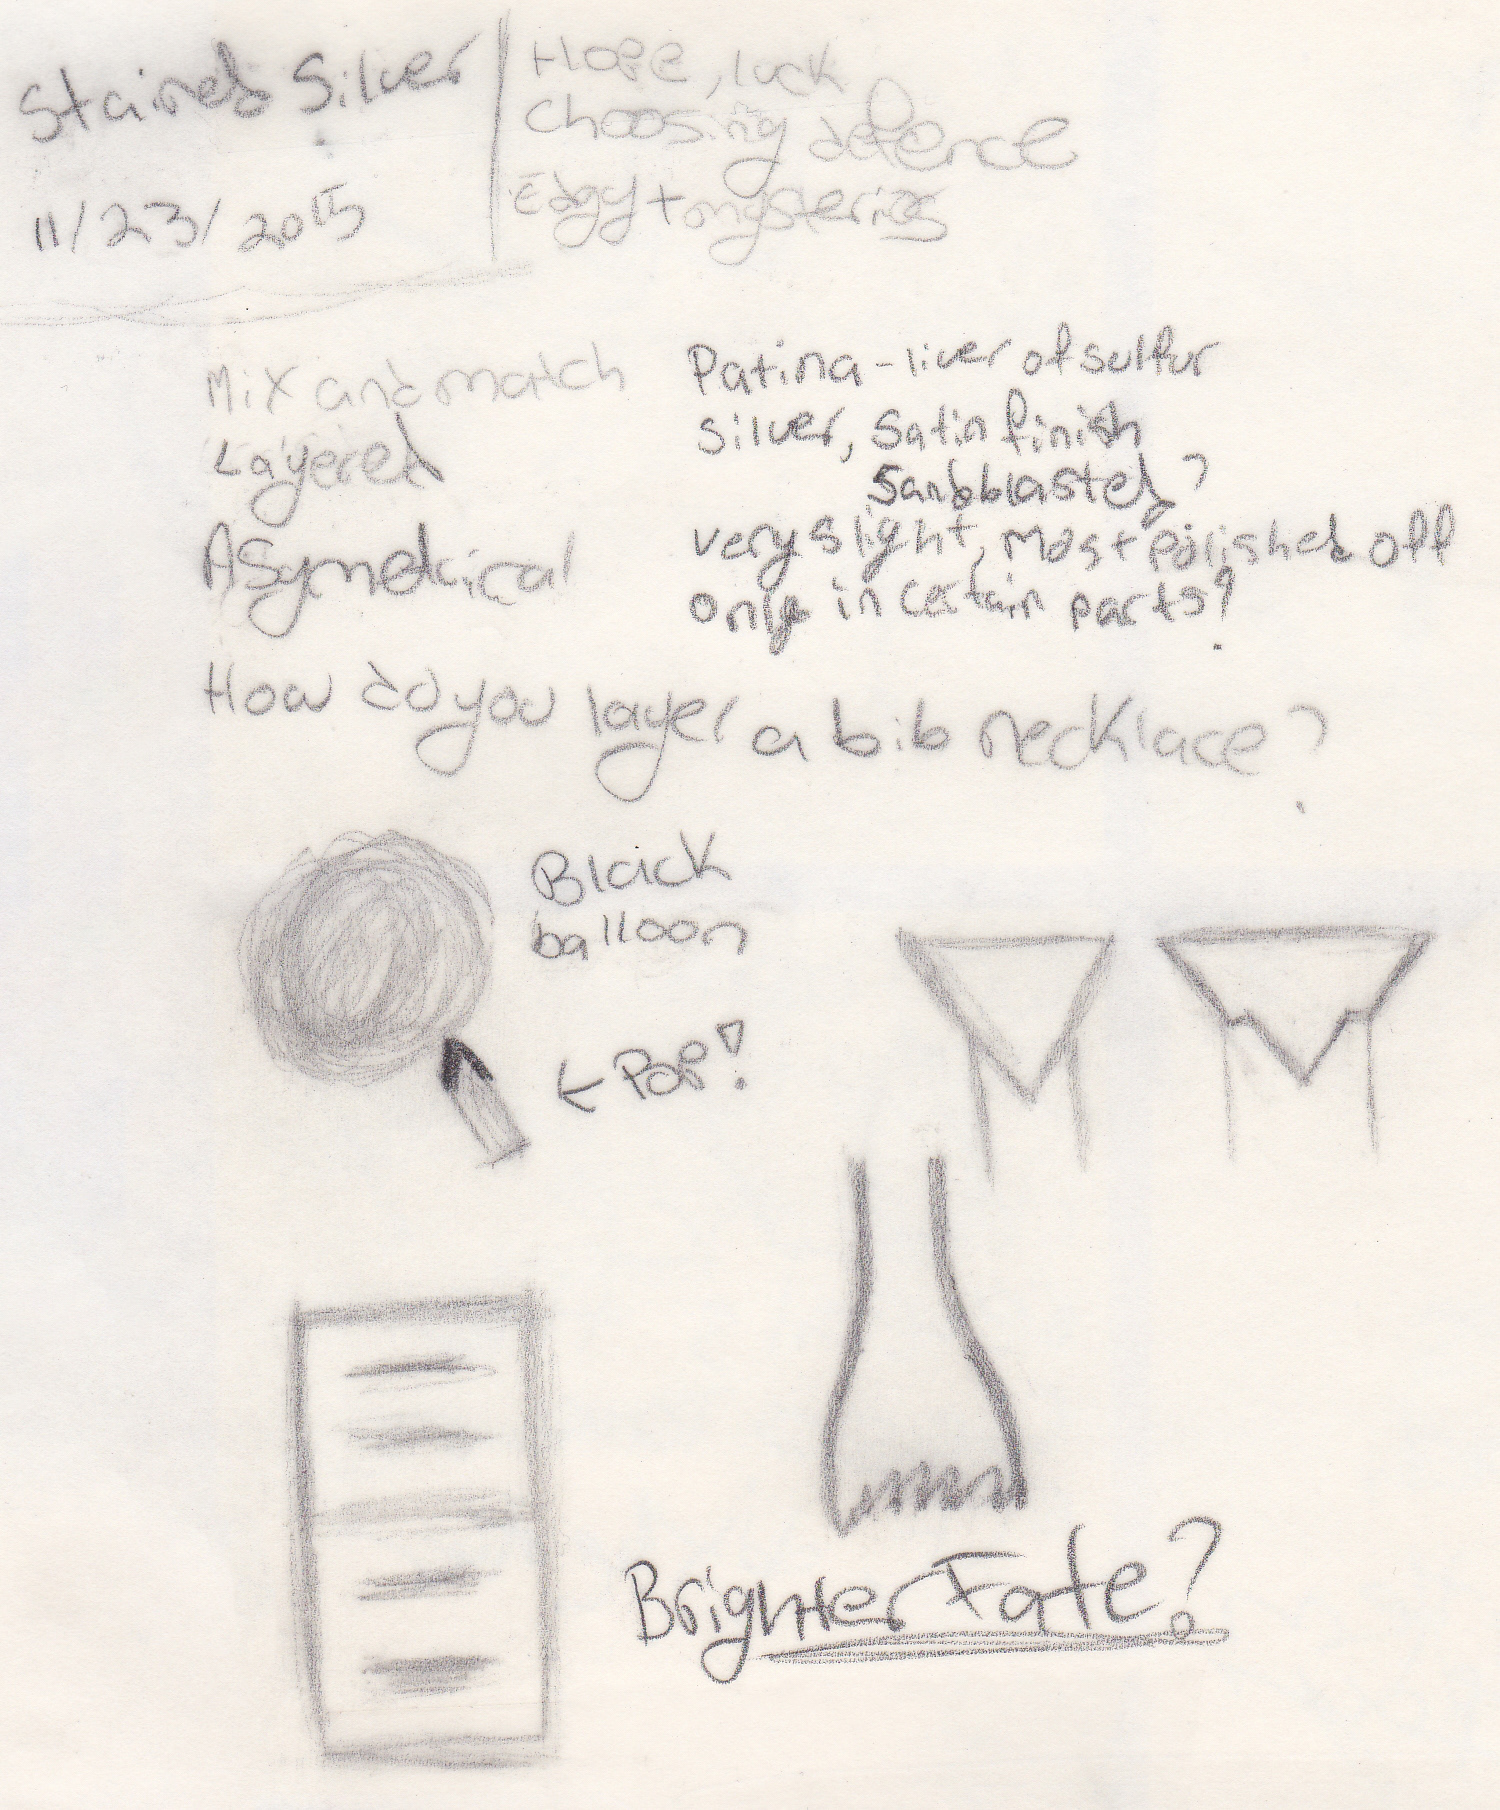 Stained Silver
11/23/2015
Hope, luck
Choosing defence
Edgy + mysterious
Mix and match
Layered
Asymetrical
Patina - liver of sulfur
silver, satin finish
Sandblasted?
very slight, most polished off
only in certain parts?
How do you layer a bib necklace?
Black
balloon
← POP!
Brighter Fate?